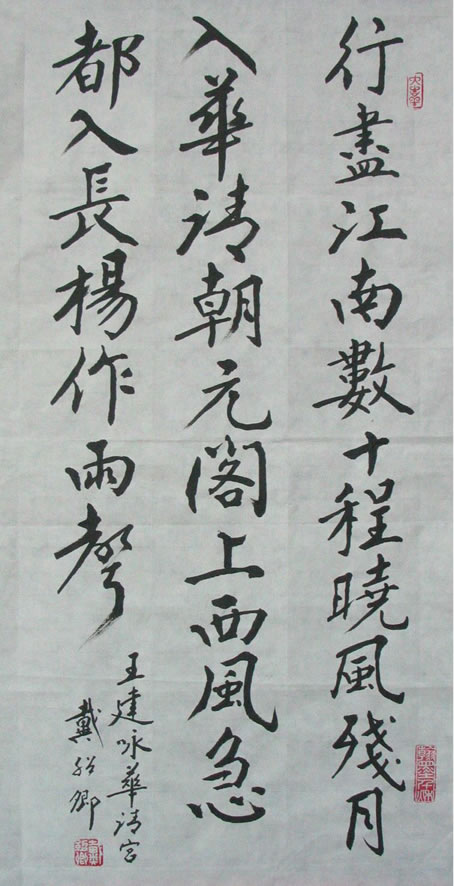 行盡江南數十程曉風殘月
入華清朝元閣上西風急
都入長楊作雨聲
王建咏華清宮
戴紹卿